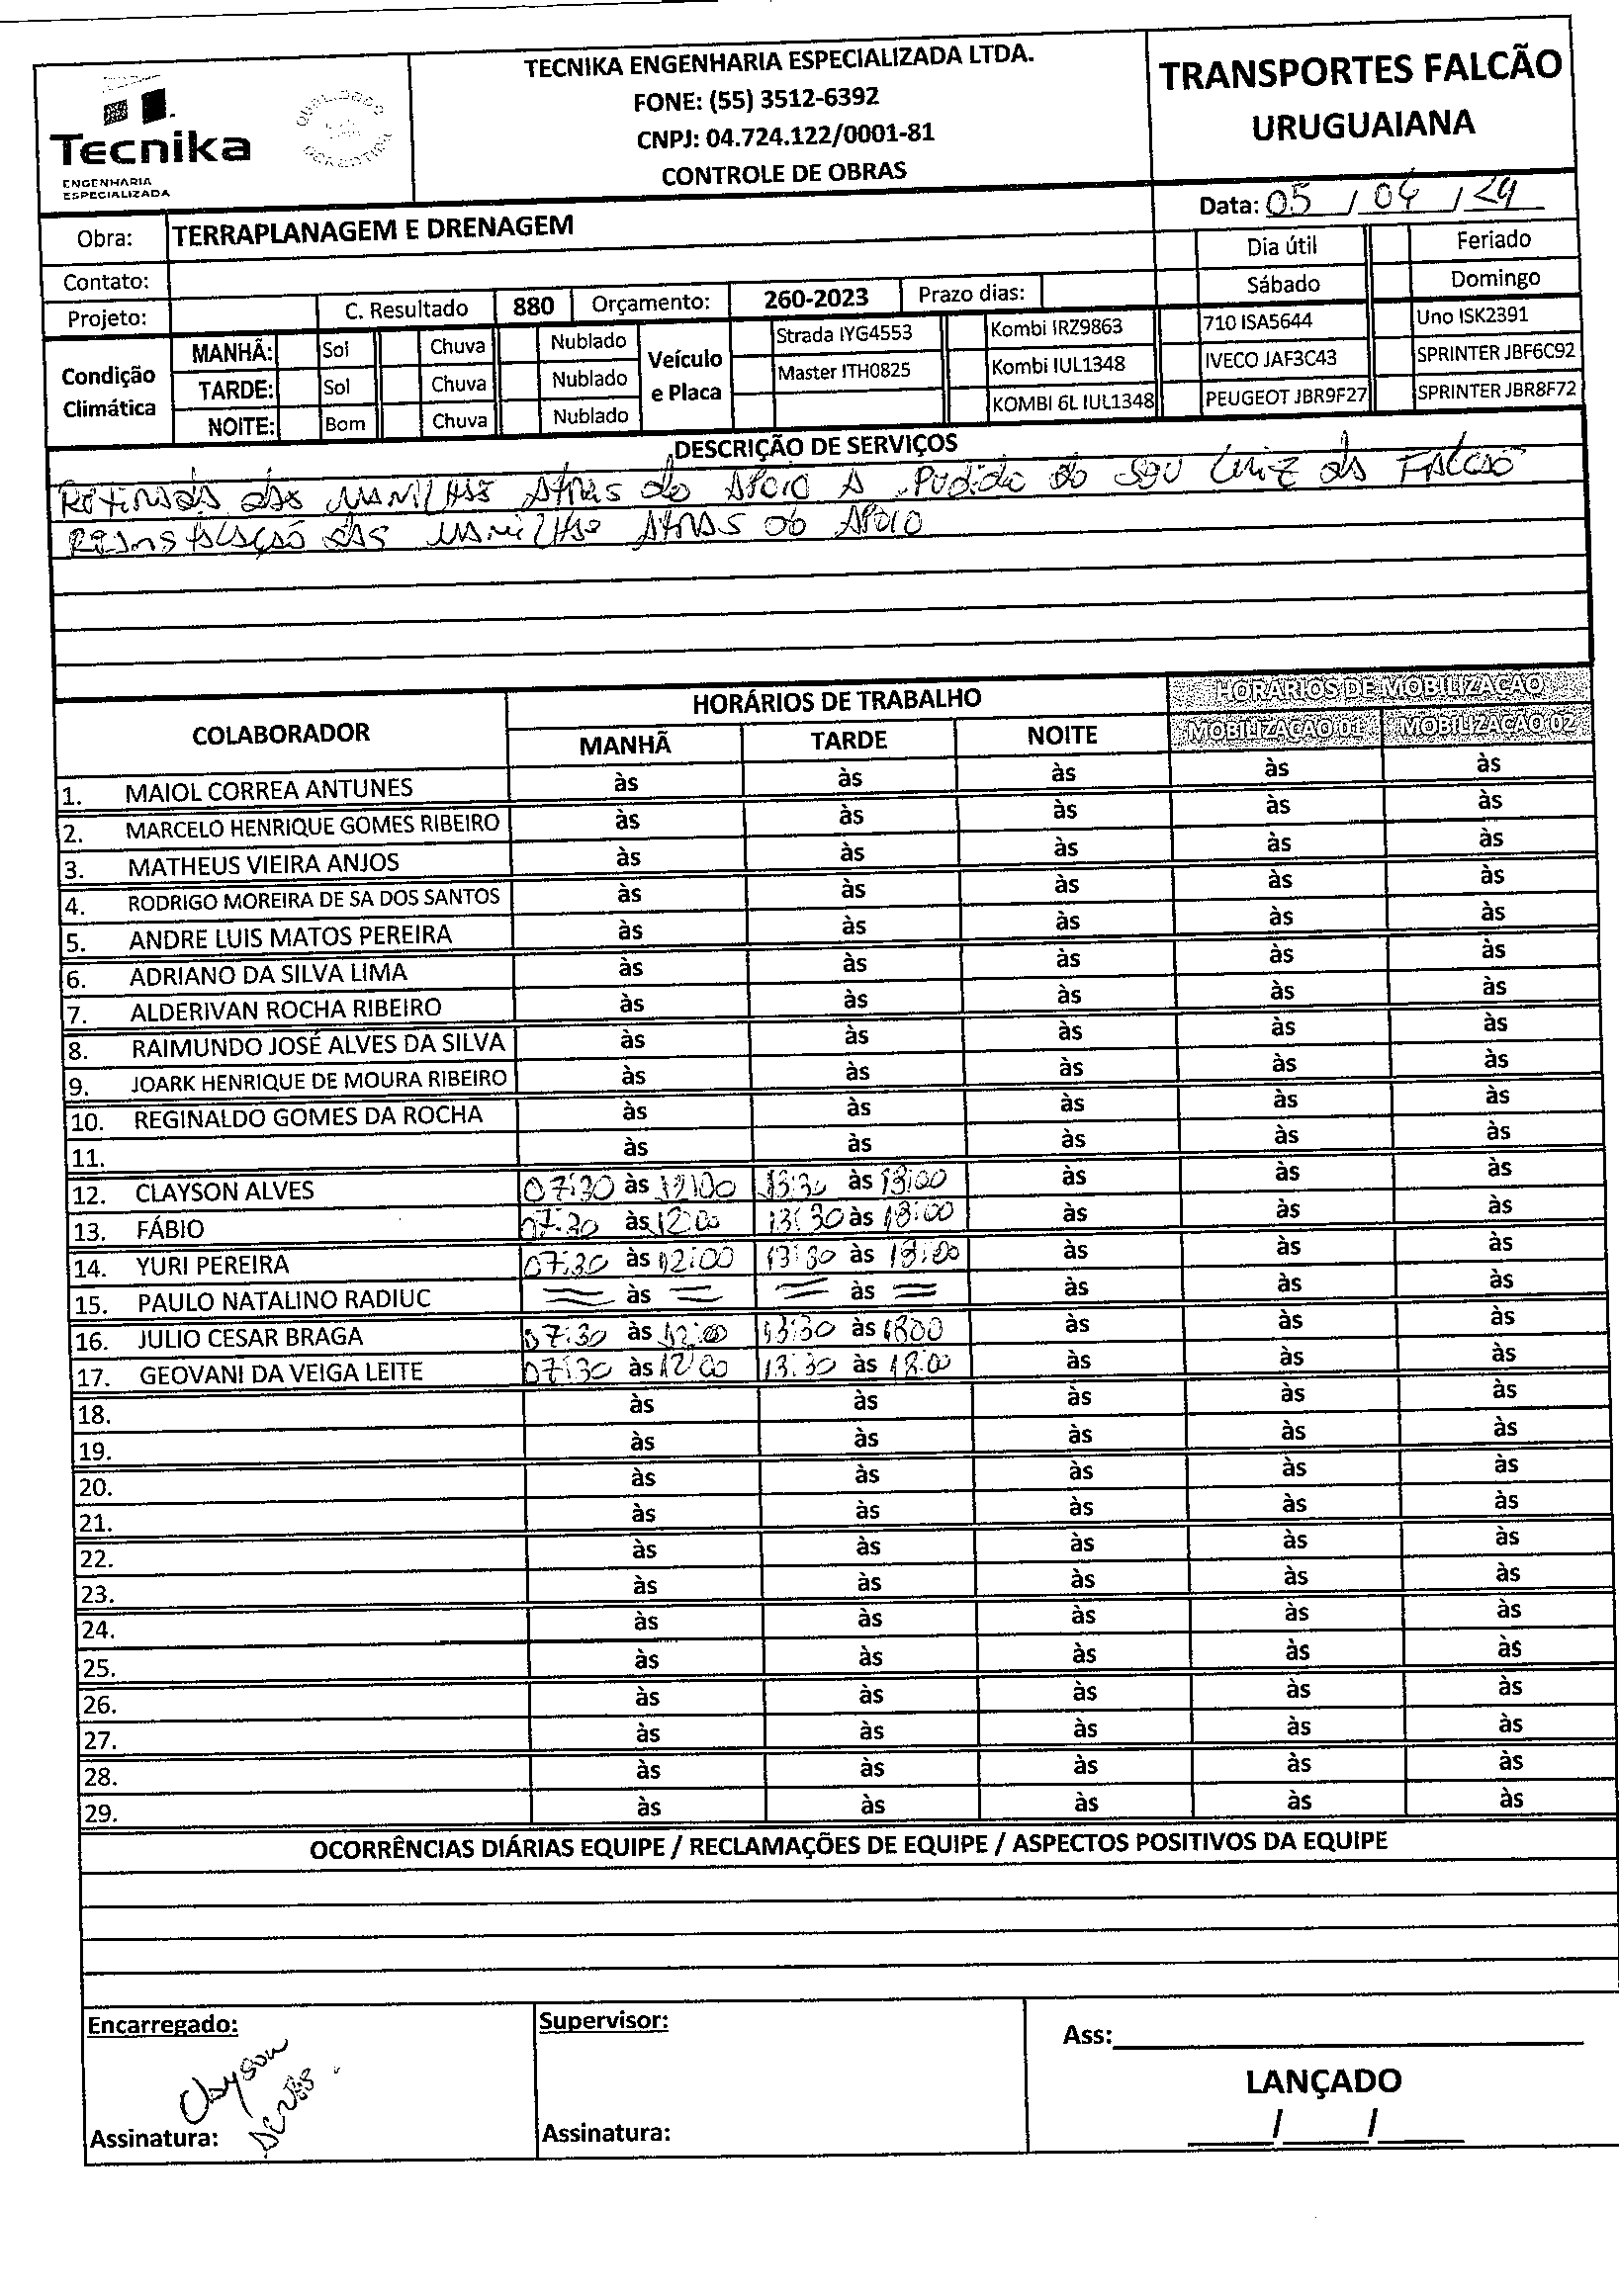 TECNIKA ENGENHARIA ESPECIALIZADA LTDA.
FONE: (55) 3512-6392
CNPJ: 04.724.122/0001-81
CONTROLE DE OBRAS
Tecnika
ENGENHARIA
ESPECIALIZADA
TRANSPORTES FALCÃO
URUGUAIANA
Data: 05 / 04 / 24
Obra: TERRAPLANAGEM E DRENAGEM
Dia útil Feriado
Contato:
Sábado Domingo
Projeto: C. Resultado 880 Orçamento: 260-2023 Prazo dias:
Condição Climática
MANHÃ: Sol Chuva Nublado
TARDE: Sol Chuva Nublado
NOITE: Bom Chuva Nublado
Veículo e Placa
Strada IYG4553 Kombi IRZ9863 710 ISA5644 Uno ISK2391
Master ITH0825 Kombi IUL1348 IVECO JAF3C43 SPRINTER JBF6C92
KOMBI 6L IUL1348 PEUGEOT JBR9F27 SPRINTER JBR8F72
DESCRIÇÃO DE SERVIÇOS
Retirada das manilhas atras do apoio a pedido do seu Luiz da Falcão
Reinstalação das manilhas atras do apoio
COLABORADOR HORÁRIOS DE TRABALHO HORÁRIOS DE MOBILIZAÇÃO
MANHÃ TARDE NOITE MOBILIZAÇÃO 01 MOBILIZAÇÃO 02
1. MAIOL CORREA ANTUNES às às às às às
2. MARCELO HENRIQUE GOMES RIBEIRO às às às às às
3. MATHEUS VIEIRA ANJOS às às às às às
4. RODRIGO MOREIRA DE SA DOS SANTOS às às às às às
5. ANDRE LUIS MATOS PEREIRA às às às às às
6. ADRIANO DA SILVA LIMA às às às às às
7. ALDERIVAN ROCHA RIBEIRO às às às às às
8. RAIMUNDO JOSÉ ALVES DA SILVA às às às às às
9. JOARK HENRIQUE DE MOURA RIBEIRO às às às às às
10. REGINALDO GOMES DA ROCHA às às às às às
11. às às às às às
12. CLAYSON ALVES 07:30 às 12:00 13:30 às 18:00 às às às
13. FÁBIO 07:30 às 12:00 13:30 às 18:00 às às às
14. YURI PEREIRA 07:30 às 12:00 13:30 às 18:00 às às às
15. PAULO NATALINO RADIUC == às == == às == às às às
16. JULIO CESAR BRAGA 07:30 às 12:00 13:30 às 18:00 às às às
17. GEOVANI DA VEIGA LEITE 07:30 às 12:00 13:30 às 18:00 às às às
18. às às às às às
19. às às às às às
20. às às às às às
21. às às às às às
22. às às às às às
23. às às às às às
24. às às às às às
25. às às às às às
26. às às às às às
27. às às às às às
28. às às às às às
29. às às às às às
OCORRÊNCIAS DIÁRIAS EQUIPE / RECLAMAÇÕES DE EQUIPE / ASPECTOS POSITIVOS DA EQUIPE
Encarregado: Supervisor: Ass:
Clayson
LANÇADO
Assinatura: Assinatura: / /